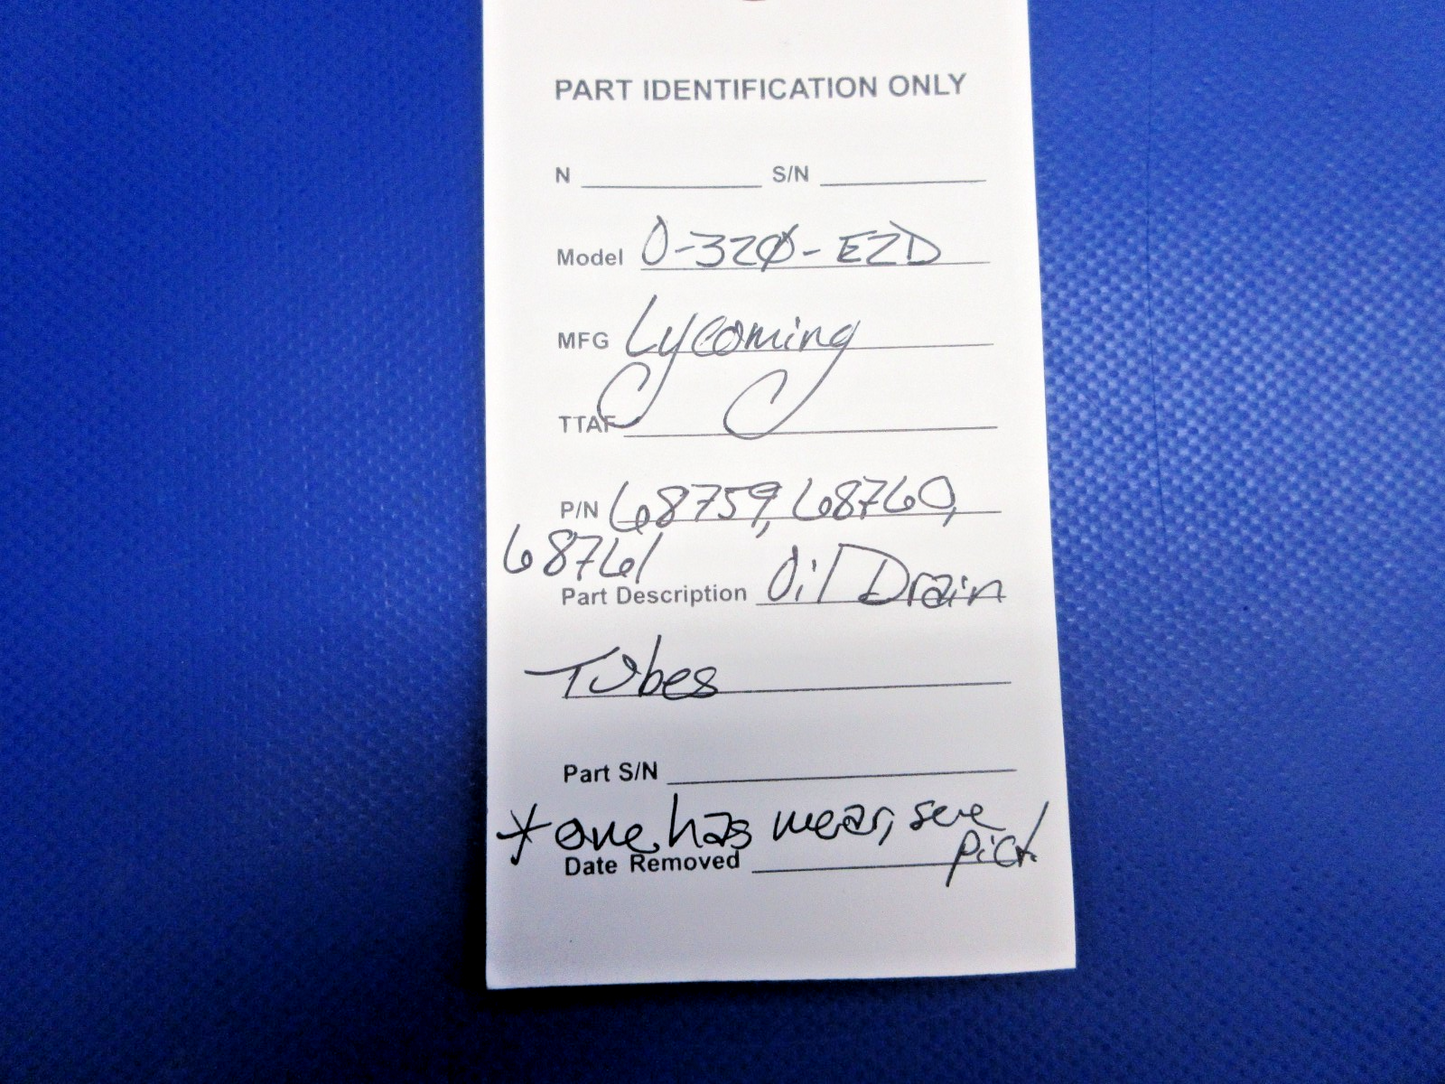 PART IDENTIFICATION ONLY
N ____________ S/N ____________
Model O-320-E2D
MFG Lycoming
TTAF ____________
P/N 68759, 68760,
68761
Part Description Oil Drain
Tubes
Part S/N ____________
* one has wear, see
pict.
Date Removed ____________